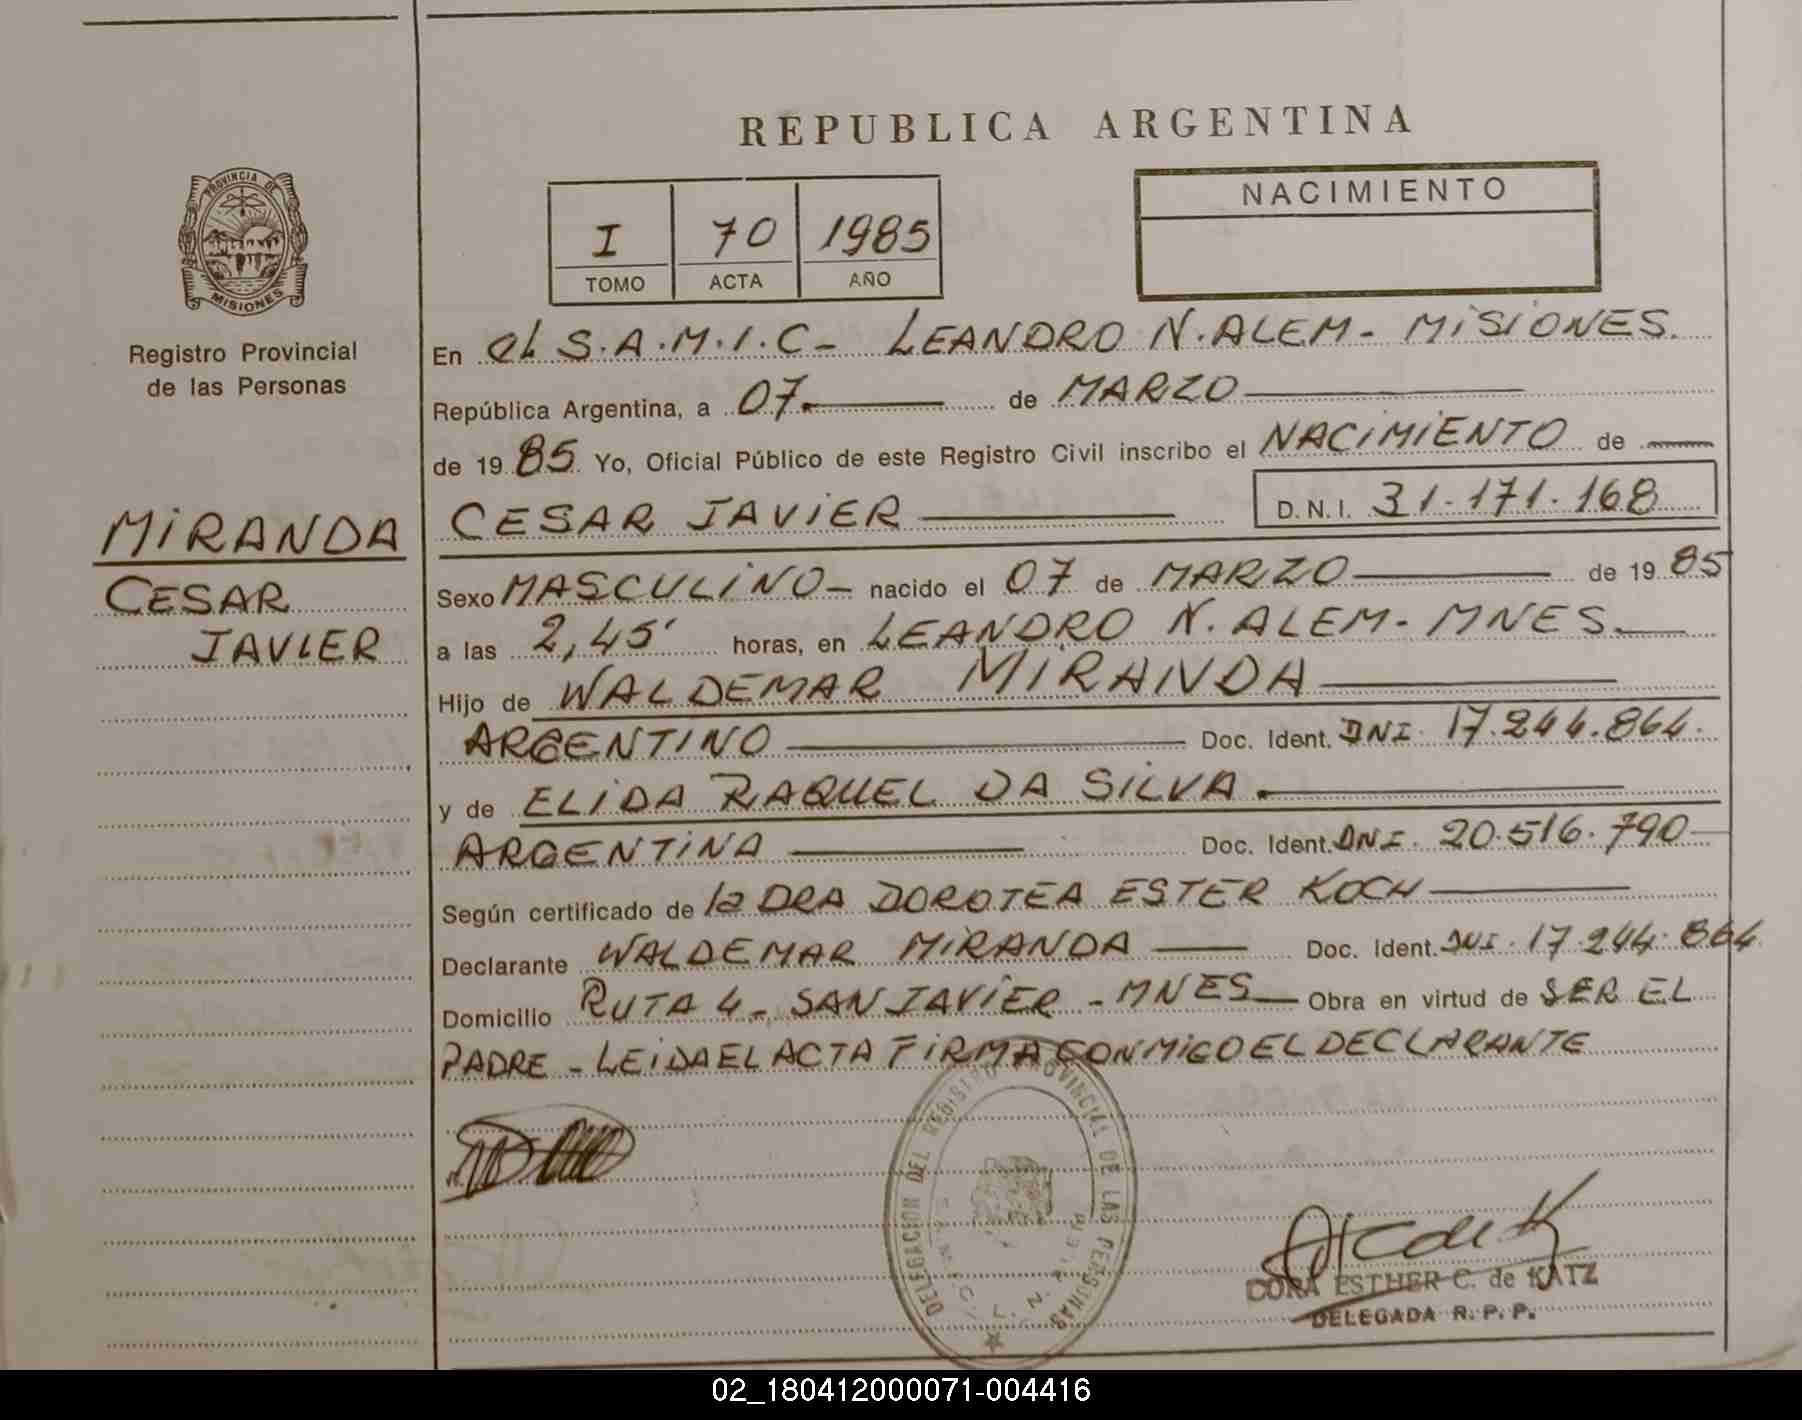 REPUBLICA ARGENTINA
PROVINCIA DE
MISIONES
Registro Provincial
de las Personas
I 70 1985
TOMO ACTA AÑO
NACIMIENTO
En el S.A.M.I.C- LEANDRO N. ALEM- MISIONES.
República Argentina, a 07. de MARZO
de 1985 Yo, Oficial Público de este Registro Civil inscribo el NACIMIENTO de
MIRANDA
CESAR
JAVIER
CESAR JAVIER D.N.I. 31.171.168
Sexo MASCULINO- nacido el 07 de MARZO de 1985
a las 2,45' horas, en LEANDRO N. ALEM- MNES.
Hijo de WALDEMAR MIRANDA
ARGENTINO Doc. Ident. DNI. 17.244.864.
y de ELIDA RAQUEL DA SILVA.
ARGENTINA Doc. Ident. DNI. 20.516.790
Según certificado de la DRA DOROTEA ESTER KOCH
Declarante WALDEMAR MIRANDA Doc. Ident. DNI. 17.244.864
Domicilio RUTA 4- SAN JAVIER - MNES Obra en virtud de SER EL
PADRE - LEIDA EL ACTA FIRMA CONMIGO EL DECLARANTE
DELEGACION DEL REGISTRO PROVINCIAL DE LAS PERSONAS
S.A.M.I.C. L. N. ALEM
CORA ESTHER C. de KATZ
DELEGADA R. P. P.
02_180412000071-004416